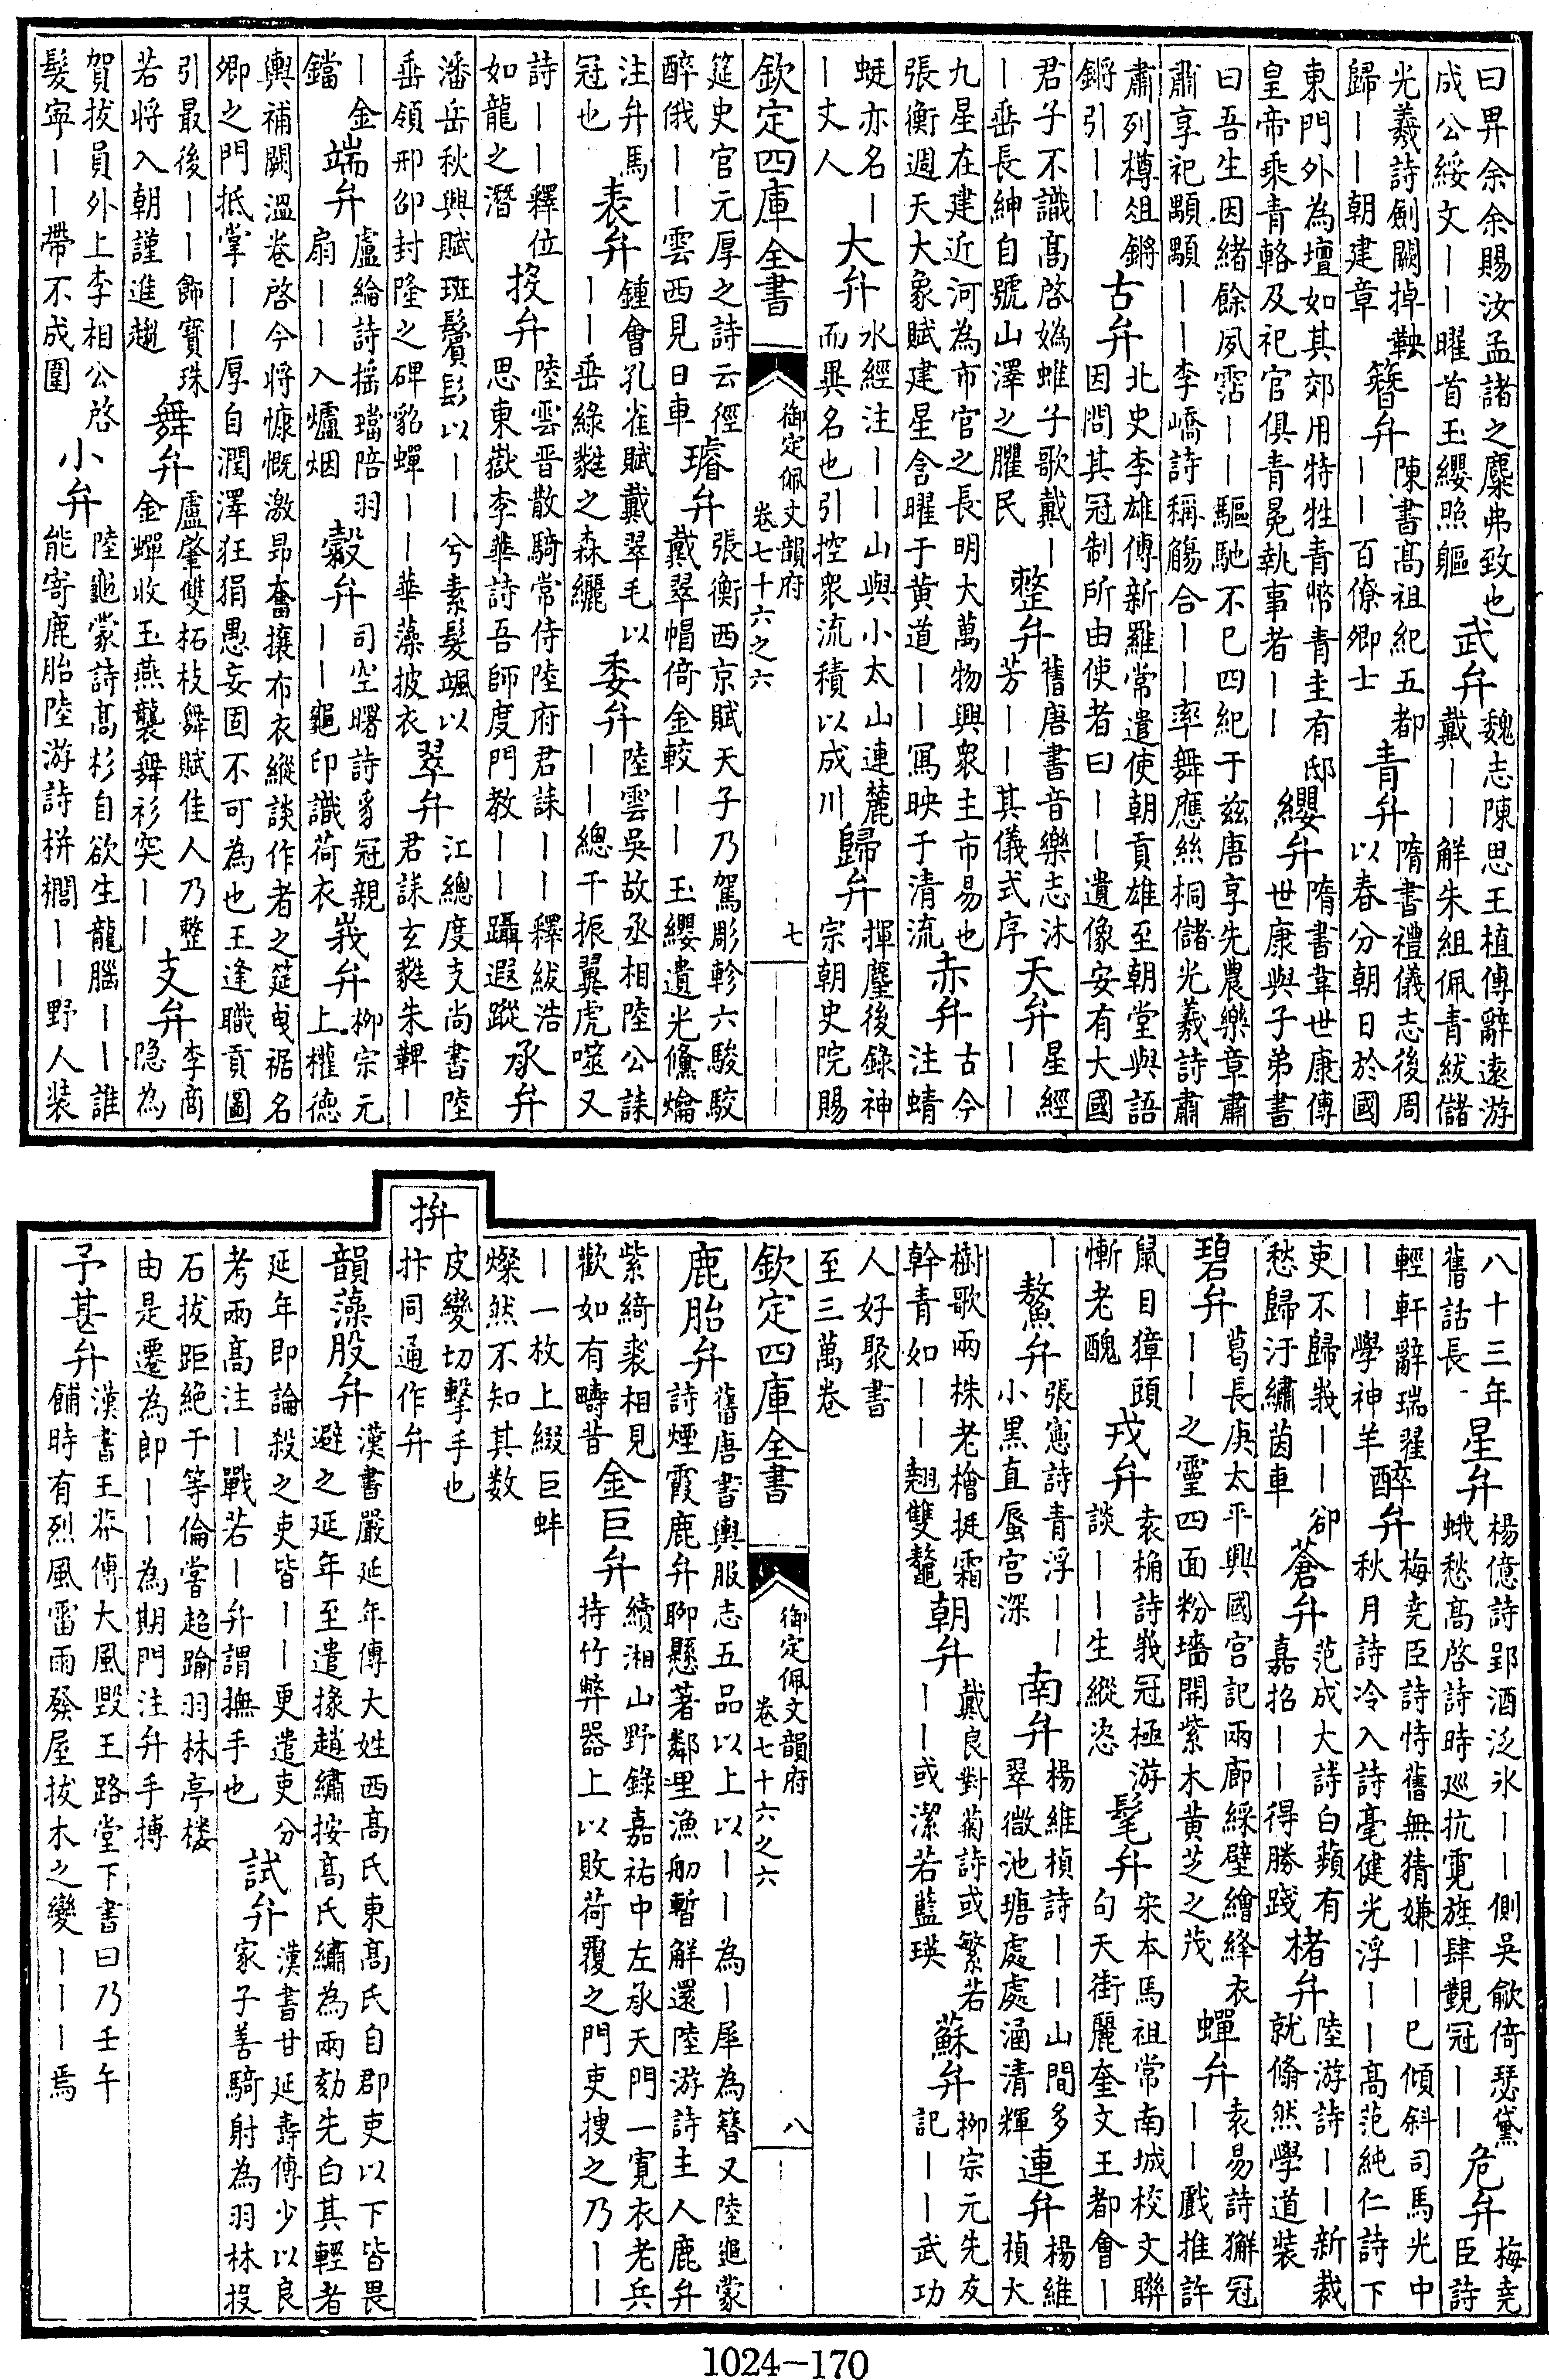 曰畀余余賜汝孟諸之麋弗致也
成公綏文｜｜曜首玉纓照軀
武弁
魏志陳思王植傳辭遠游
戴｜｜解朱組佩青紱儲
光羲詩劍闕掉鞅
歸｜｜朝建章
簪弁
陳書髙祖紀五都
｜｜百僚卿士
青弁
隋書禮儀志後周
以春分朝日於國
東門外為壇如其郊用特牲青幣青圭有邸
皇帝乘青輅及祀官俱青冕執事者｜｜
纓弁
隋書韋世康傳
世康與子弟書
曰吾生因緒餘夙霑｜｜驅馳不已四紀于兹唐享先農樂章肅
肅享祀顒顒｜｜李嶠詩稱觴合｜｜率舞應絲桐儲光羲詩肅
肅列樽俎鏘
鏘引｜｜
古弁
北史李雄傳新羅常遣使朝貢雄至朝堂與語
因問其冠制所由使者曰｜｜遺像安有大國
君子不識髙啓媯蜼子歌戴｜
｜垂長紳自號山澤之臞民
整弁
舊唐書音樂志沐
芳｜｜其儀式序
天弁
星經
｜｜
九星在建近河為市官之長明大萬物興衆主市易也
張衡週天大象賦建星含曜于黄道｜｜寫映于清流
赤弁
古今
注蜻
蜓亦名｜
｜丈人
大弁
水經注｜｜山與小太山連麓
而異名也引控衆流積以成川
歸弁
揮麈後錄神
宗朝史院賜
欽定四庫全書
御定佩文韻府
卷七十六之六
七
筵史官元厚之詩云徑
醉俄｜｜雲西見日車
璿弁
張衡西京賦天子乃駕彫軫六駿駮
戴翠帽倚金較｜｜玉纓遺光儵爚
注弁馬
冠也
表弁
鍾會孔雀賦戴翠毛以
｜｜垂綠蕤之森纚
委弁
陸雲吳故丞相陸公誄
｜｜總干振翼虎噬又
詩｜｜釋位
如龍之潛
投弁
陸雲晉散騎常侍陸府君誄｜｜釋紱浩
思東嶽李華詩吾師度門教｜｜躡遐蹤
承弁
潘岳秋興賦斑鬢髟以｜｜兮素髮颯以
垂領邢邵封隆之碑貂蟬｜｜華藻披衣
翠弁
江總度支尚書陸
君誄玄蕤朱鞞｜
｜金
鐺
端弁
盧綸詩揺璫陪羽
扇｜｜入爐烟
縠弁
司空曙詩豸冠親
｜｜龜印識荷衣
峩弁
柳宗元
上權德
輿補闕溫卷啓今將慷慨激昂奮攘布衣縱談作者之筵曳裾名
卿之門抵掌｜｜厚自潤澤狂狷愚妄固不可為也王逢職貢圖
引最後｜｜飾寳珠
若將入朝謹進趨
舞弁
盧肇雙柘枝舞賦佳人乃整
金蟬收玉燕襲舞衫突｜｜
支弁
李商
隐為
賀拔員外上李相公啓
髮寧｜｜帶不成圍
小弁
陸龜蒙詩髙杉自欲生龍腦｜｜誰
能寄鹿胎陸游詩栟櫚｜｜野人装
八十三年
舊話長
星弁
楊億詩郢酒泛氷｜｜側吳歈倚瑟黛
蛾愁髙啓詩時巡抗霓旌肆覲冠｜｜
危弁
梅堯
臣詩
輕軒辭瑞翟
｜｜學神羊
醉弁
梅堯臣詩恃舊無猜嫌｜｜已傾斜司馬光中
秋月詩冷入詩毫健光浮｜｜髙范純仁詩下
吏不歸峩｜｜卻
愁歸汙繡茵車
蒼弁
范成大詩白蘋有
嘉招｜｜得勝踐
楮弁
陸游詩｜｜新裁
就翛然學道装
碧弁
葛長庚太平興國宮記兩廊綵壁繪絳衣
｜｜之靈四面粉墻開紫木黄芝之茂
蟬弁
袁易詩獬冠
｜｜戲推許
鼠目獐頭
慚老醜
戎弁
袁桷詩峩冠極游
談｜｜生縱恣
髦弁
宋本馬祖常南城校文聯
句天街麗奎文王都會｜
｜
鰲弁
張憲詩青浮｜｜
小黒直蜃宫深
南弁
楊維楨詩｜｜山間多
翠微池瑭處處涵清輝
連弁
楊維
楨大
樹歌兩株老檜挺霜
幹青如｜｜翹雙鼇
朝弁
戴良對菊詩或繁若
｜｜或潔若藍瑛
蘇弁
柳宗元先友
記｜｜武功
人好聚書
至三萬卷
欽定四庫全書
御定佩文韻府
卷七十六之六
八
鹿胎弁
舊唐書輿服志五品以上以｜｜為｜犀為簪又陸龜蒙
詩煙霞鹿弁聊懸著鄰里漁舠暫解還陸游詩主人鹿弁
紫綺裘相見
歡如有疇昔
金巨弁
續湘山野錄嘉祐中左承天門一寛衣老兵
持竹弊器上以敗荷覆之門吏搜之乃｜｜
｜一枚上綴巨蚌
燦然不知其数
拚
皮變切擊手也
抃同通作弁
韻藻股弁
漢書嚴延年傳大姓西髙氏東髙氏自郡吏以下皆畏
避之延年至遣掾趙繡按髙氏繡為兩劾先白其輕者
延年即論殺之吏皆｜｜更遣吏分
考兩髙注｜戰若｜弁謂撫手也
試弁
漢書甘延壽傳少以良
家子善騎射為羽林投
石拔距絶于等倫嘗超踰羽林亭楼
由是遷為郎｜｜為期門注弁手搏
予甚弁
漢書王莽傳大風毁王路堂下書曰乃壬午
餔時有烈風雷雨發屋拔木之變｜｜｜焉
1024—170